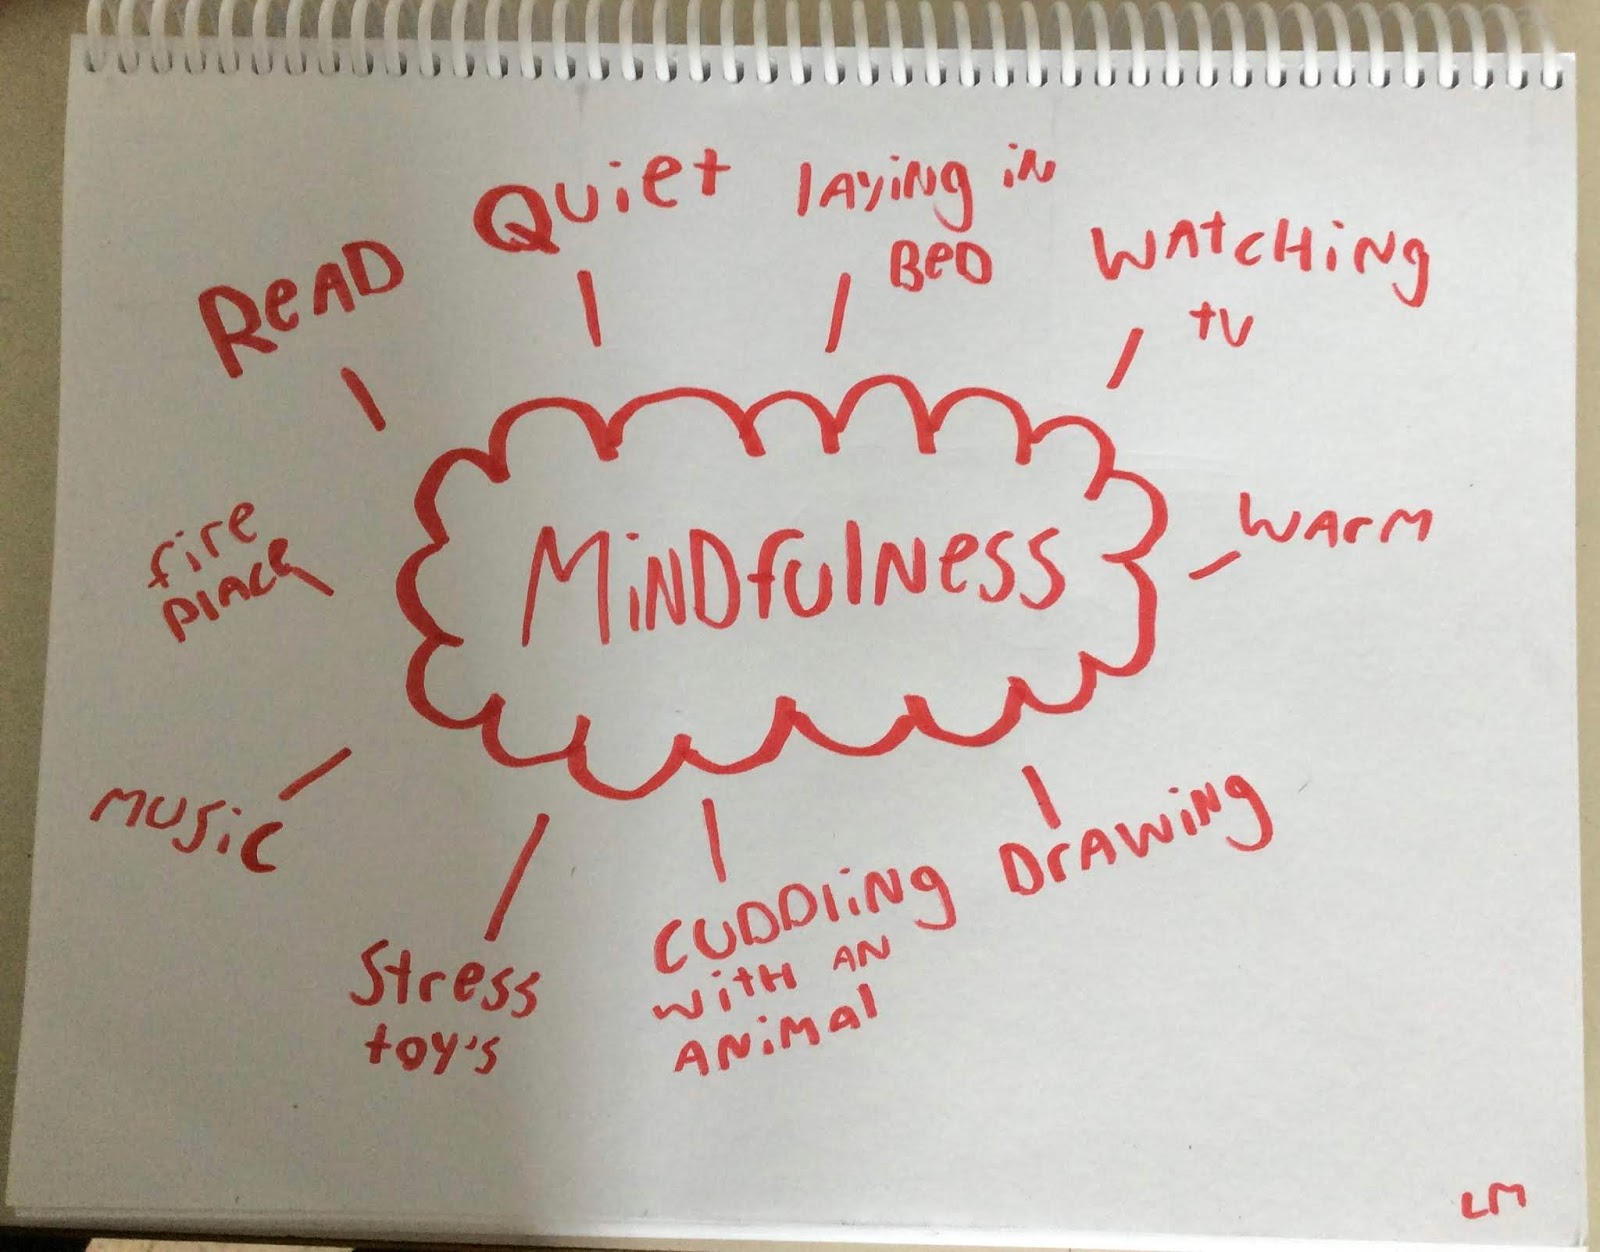 Read
Quiet
laying in
Bed
Watching
tv
fire
place
Mindfulness
Warm
Music
Stress
toy's
Cuddling
with an
animal
Drawing
LM